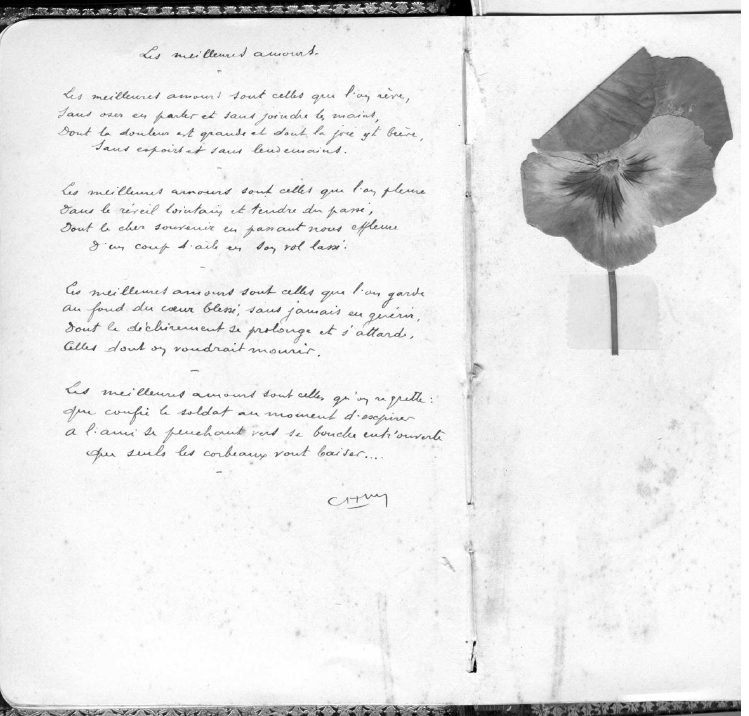 Les meilleures amours.
Les meilleures amours sont celles que l'on rêve,
Sans oser en parler et sans joindre les mains,
Dont la douleur est grande et dont la joie est brève,
Sans espoirs et sans lendemains.
Les meilleures amours sont celles que l'on pleure
Dans le réveil lointain et tendre du passé,
Dont le cher souvenir en passant nous effleure
D'un coup d'aile en son vol lassé.
Les meilleures amours sont celles que l'on garde
Au fond du cœur blessé, sans jamais en guérir,
Dont le déchirement se prolonge et s'attarde,
Celles dont on voudrait mourir.
Les meilleures amours sont celles qu'on regrette :
Que confie le soldat au moment d'expirer
A l'ami se penchant vers sa bouche entr'ouverte
Que seuls les corbeaux vont baiser...